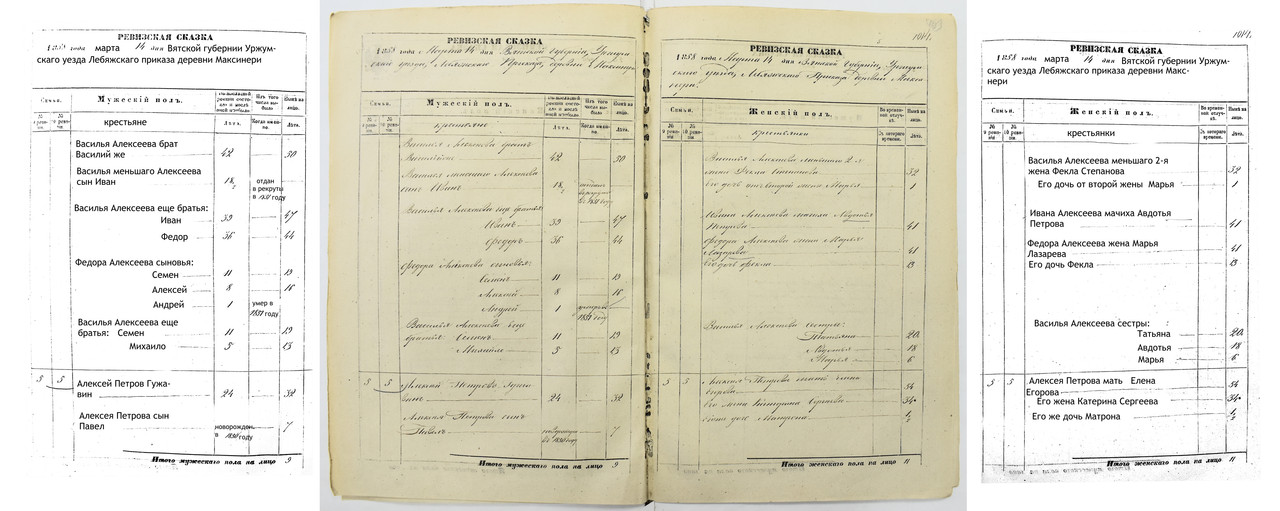 РЕВИЗСКАЯ СКАЗКА
1858 года марта 14 дня Вятской губернии Уржум-
ского уезда Лебяжского приказа деревни Максинери
Семьи. Мужескій полъ.
крестьяне Лѣта. Лѣта.
Василья Алексеева брат
Василий же 42 30
Василья меньшаго Алексеева
сын Иван 18 отдан
в рекруты
в году
Василья Алексеева еще братья:
Иван 39 47
Федор 36 44
Федора Алексеева сыновья:
Семен 11 19
Алексей 8 16
Андрей 1 умер в
1851 году
Василья Алексеева еще
братья: Семен 11 19
Михаило 5 13
5 5 Алексей Петров Гужа-
вин 24 32
Алексея Петрова сын
Павел новорожден.
в 1850 году 7
Итого мужескаго пола на лицо 9
РЕВИЗСКАЯ СКАЗКА
1858 года Марта 14 дня Вятской губернии, Уржум-
скаго уезда, Лебяжскаго Приказа, деревни Максинери
Семьи. Мужескій полъ.
крестьяне Лѣта. Лѣта.
Василья Алексеева братъ
42 30
Василья меньшаго Алексеева
сынъ Иванъ 18
Василья Алексеева еще братья:
Иванъ 39 47
Федоръ 36 44
Федора Алексеева сыновья:
Семенъ 11 19
Алексей 8 16
Андрей 1
Василья Алексеева еще
братья: Семенъ 11 19
Михайло 5 13
5 5 Алексей Петровъ
24 32
Алексея Петрова сынъ
Павелъ 7
Итого мужескаго пола на лицо 9
1014.
РЕВИЗСКАЯ СКАЗКА
1858 года Марта 14 дня Вятской губернии, Уржум-
скаго уезда, Лебяжскаго Приказа деревни Макси-
нери.
Семьи. Женскій полъ.
крестьянки Лѣта.
Василья Алексеева меньшаго 2-я
жена Фекла Степанова 32
Его дочь от второй жены Марья 1
Ивана Алексеева мачиха Авдотья
Петрова 41
Федора Алексеева жена Марья
Лазарева 41
Его дочь Фекла 13
Василья Алексеева сестры:
Татьяна 20
Авдотья 18
Марья 6
5 5 Алексея Петрова мать Елена
Егорова 54
Его жена Катерина Сергеева 34
дочь Матрона 1/2
Итого женскаго пола на лицо 11
1014.
РЕВИЗСКАЯ СКАЗКА
1858 года марта 14 дня Вятской губернии Уржум-
ского уезда Лебяжского приказа деревни Макс-
нери
Семьи. Женскій полъ.
крестьянки Лѣта.
Василья Алексеева меньшаго 2-я
жена Фекла Степанова 32
Его дочь от второй жены Марья 1
Ивана Алексеева мачиха Авдотья
Петрова 41
Федора Алексеева жена Марья
Лазарева 41
Его дочь Фекла 13
Василья Алексеева сестры:
Татьяна 20
Авдотья 18
Марья 6
5 5 Алексея Петрова мать Елена
Егорова 54
Его жена Катерина Сергеева 34
Его же дочь Матрона 1/2
Итого женскаго пола на лицо 11